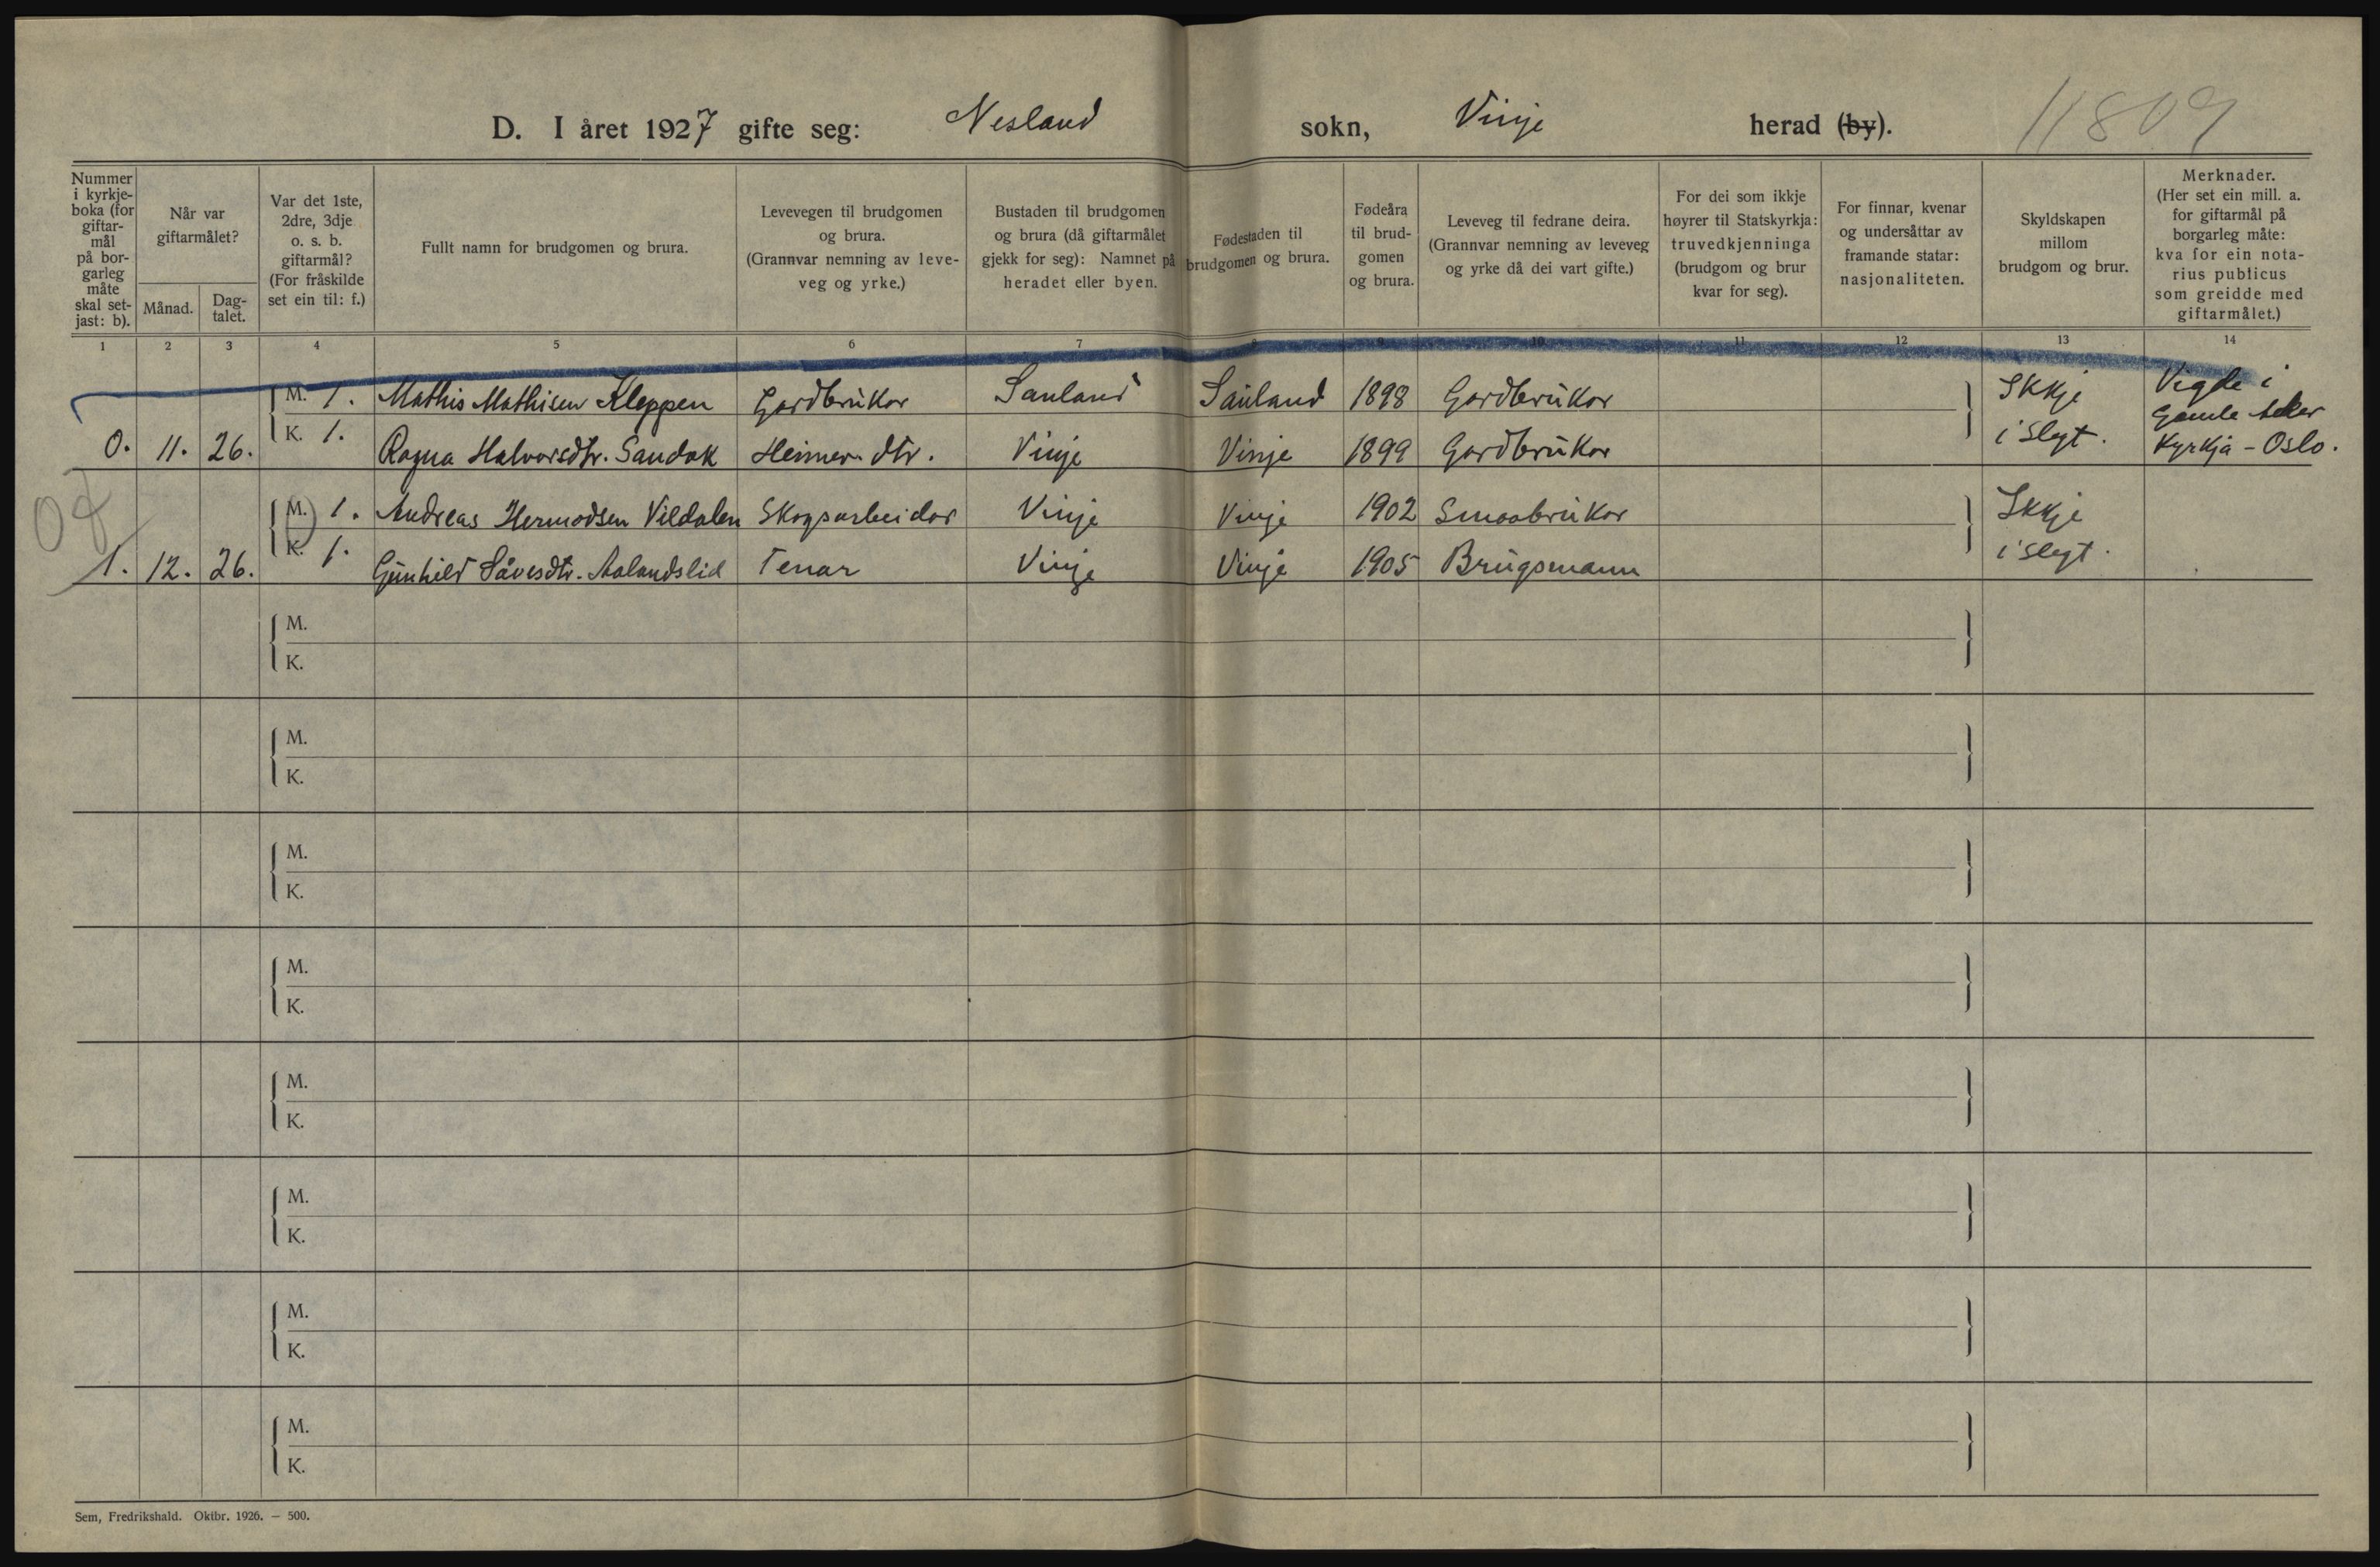 D. I året 1927 gifte seg: Nesland sokn, Vinje herad (by).
11809
Nummer
i kyrkje-
boka (for
giftar-
mål
på bor-
garleg
måte
skal set-
jast: b).
Når var
giftarmålet?
Månad.
Dag-
talet.
Var det 1ste,
2dre, 3dje
o. s. b.
giftarmål?
(For fråskilde
set ein til: f.)
Fullt namn for brudgomen og brura.
Levevegen til brudgomen
og brura.
(Grannvar nemning av leve-
veg og yrke.)
Bustaden til brudgomen
og brura (då giftarmålet
gjekk for seg): Namnet på
heradet eller byen.
Fødestaden til
brudgomen og brura.
Fødeåra
til brud-
gomen
og brura.
Leveveg til fedrane deira.
(Grannvar nemning av leveveg
og yrke då dei vart gifte.)
For dei som ikkje
høyrer til Statskyrkja:
truvedkjenninga
(brudgom og brur
kvar for seg).
For finnar, kvenar
og undersåttar av
framande statar:
nasjonaliteten.
Skyldskapen
millom
brudgom og brur.
Merknader.
(Her set ein mill. a.
for giftarmål på
borgarleg måte:
kva for ein nota-
rius publicus
som greidde med
giftarmålet.)
1 2 3 4 5 6 7 8 9 10 11 12 13 14
M. 1. Mathis Mathisen Kleppen Gardbrukar Sauland Sauland 1898 Gardbrukar Ikkje Vigde i
Gamle Aker
0. 11. 26. K. 1. Ragna Halvorsdtr. Sandok Heimev. dtr. Vinje Vinje 1899 Gardbrukar i slegt. Kyrkja - Oslo.
M. 1. Andreas Hermodsen Vildalen Skogsarbeidar Vinje Vinje 1902 Smaabrukar Ikkje
1. 12. 26. K. 1. Gunhild Såvesdtr. Aalandslid Tenar Vinje Vinje 1905 Brugsmann i slegt.
M.
K.
M.
K.
M.
K.
M.
K.
M.
K.
M.
K.
M.
K.
M.
K.
Sem, Fredrikshald. Oktbr. 1926. — 500.